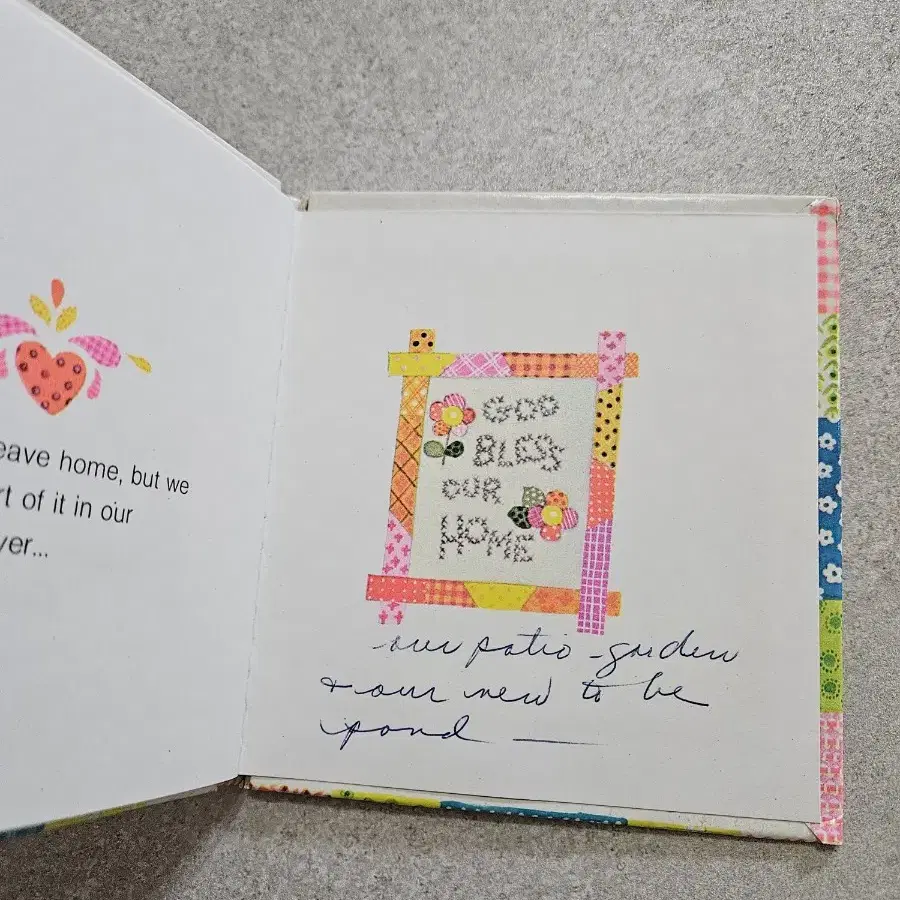 eave home, but we
rt of it in our
ver...
GOD
BLESS
OUR
HOME
our patio - garden
+ our new to be
pond —